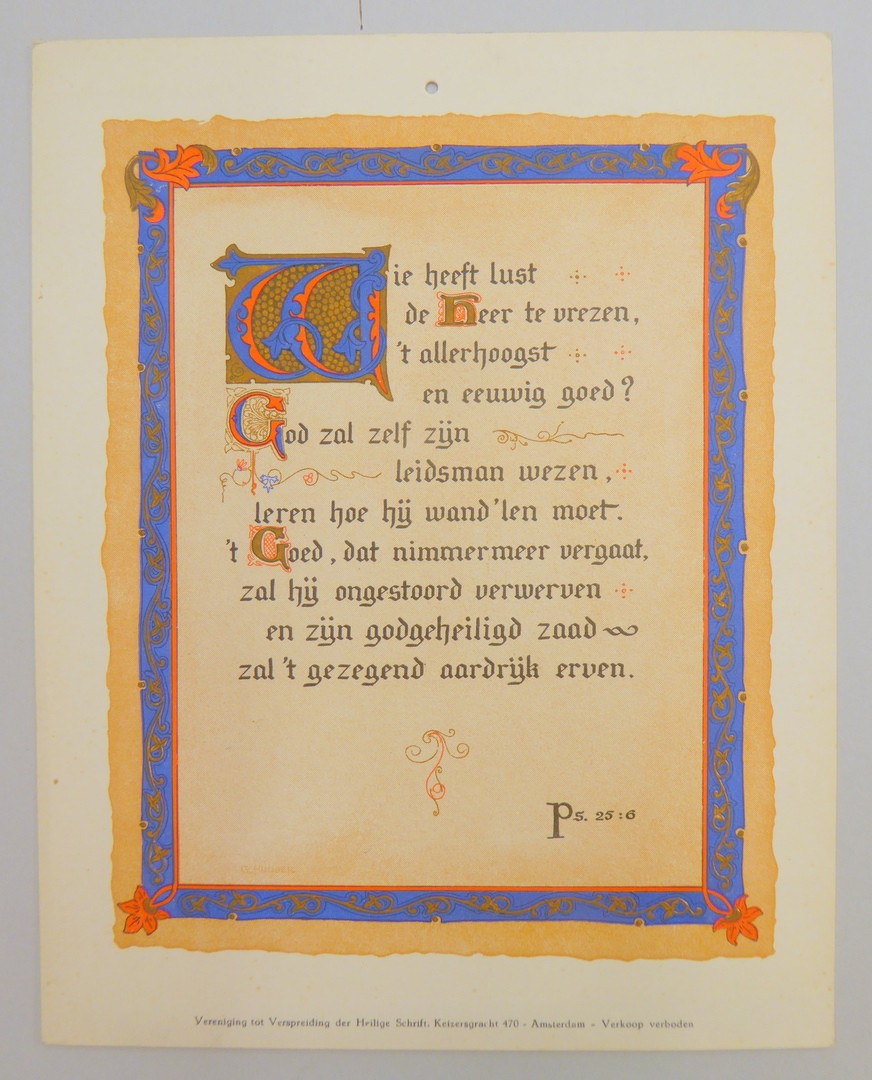 Wie heeft lust
de Heer te vrezen,
't allerhoogst
en eeuwig goed?
God zal zelf zijn
leidsman wezen,
leren hoe hij wand'len moet.
't Goed, dat nimmermeer vergaat,
zal hij ongestoord verwerven
en zijn godgeheiligd zaad
zal 't gezegend aardrijk erven.
Ps. 25:6
Vereniging tot Verspreiding der Heilige Schrift. Keizersgracht 470 - Amsterdam - Verkoop verboden